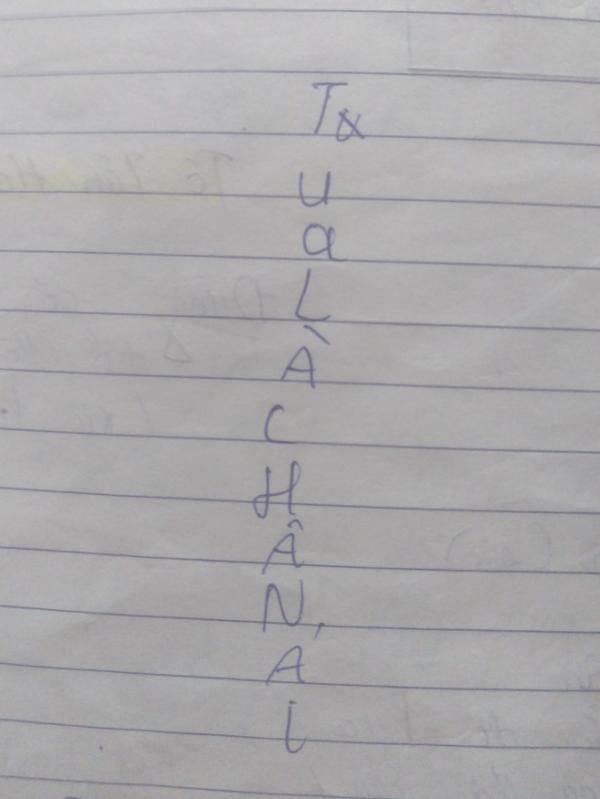 Tx
U
a
L
À
C
H
Â
N,
A
i